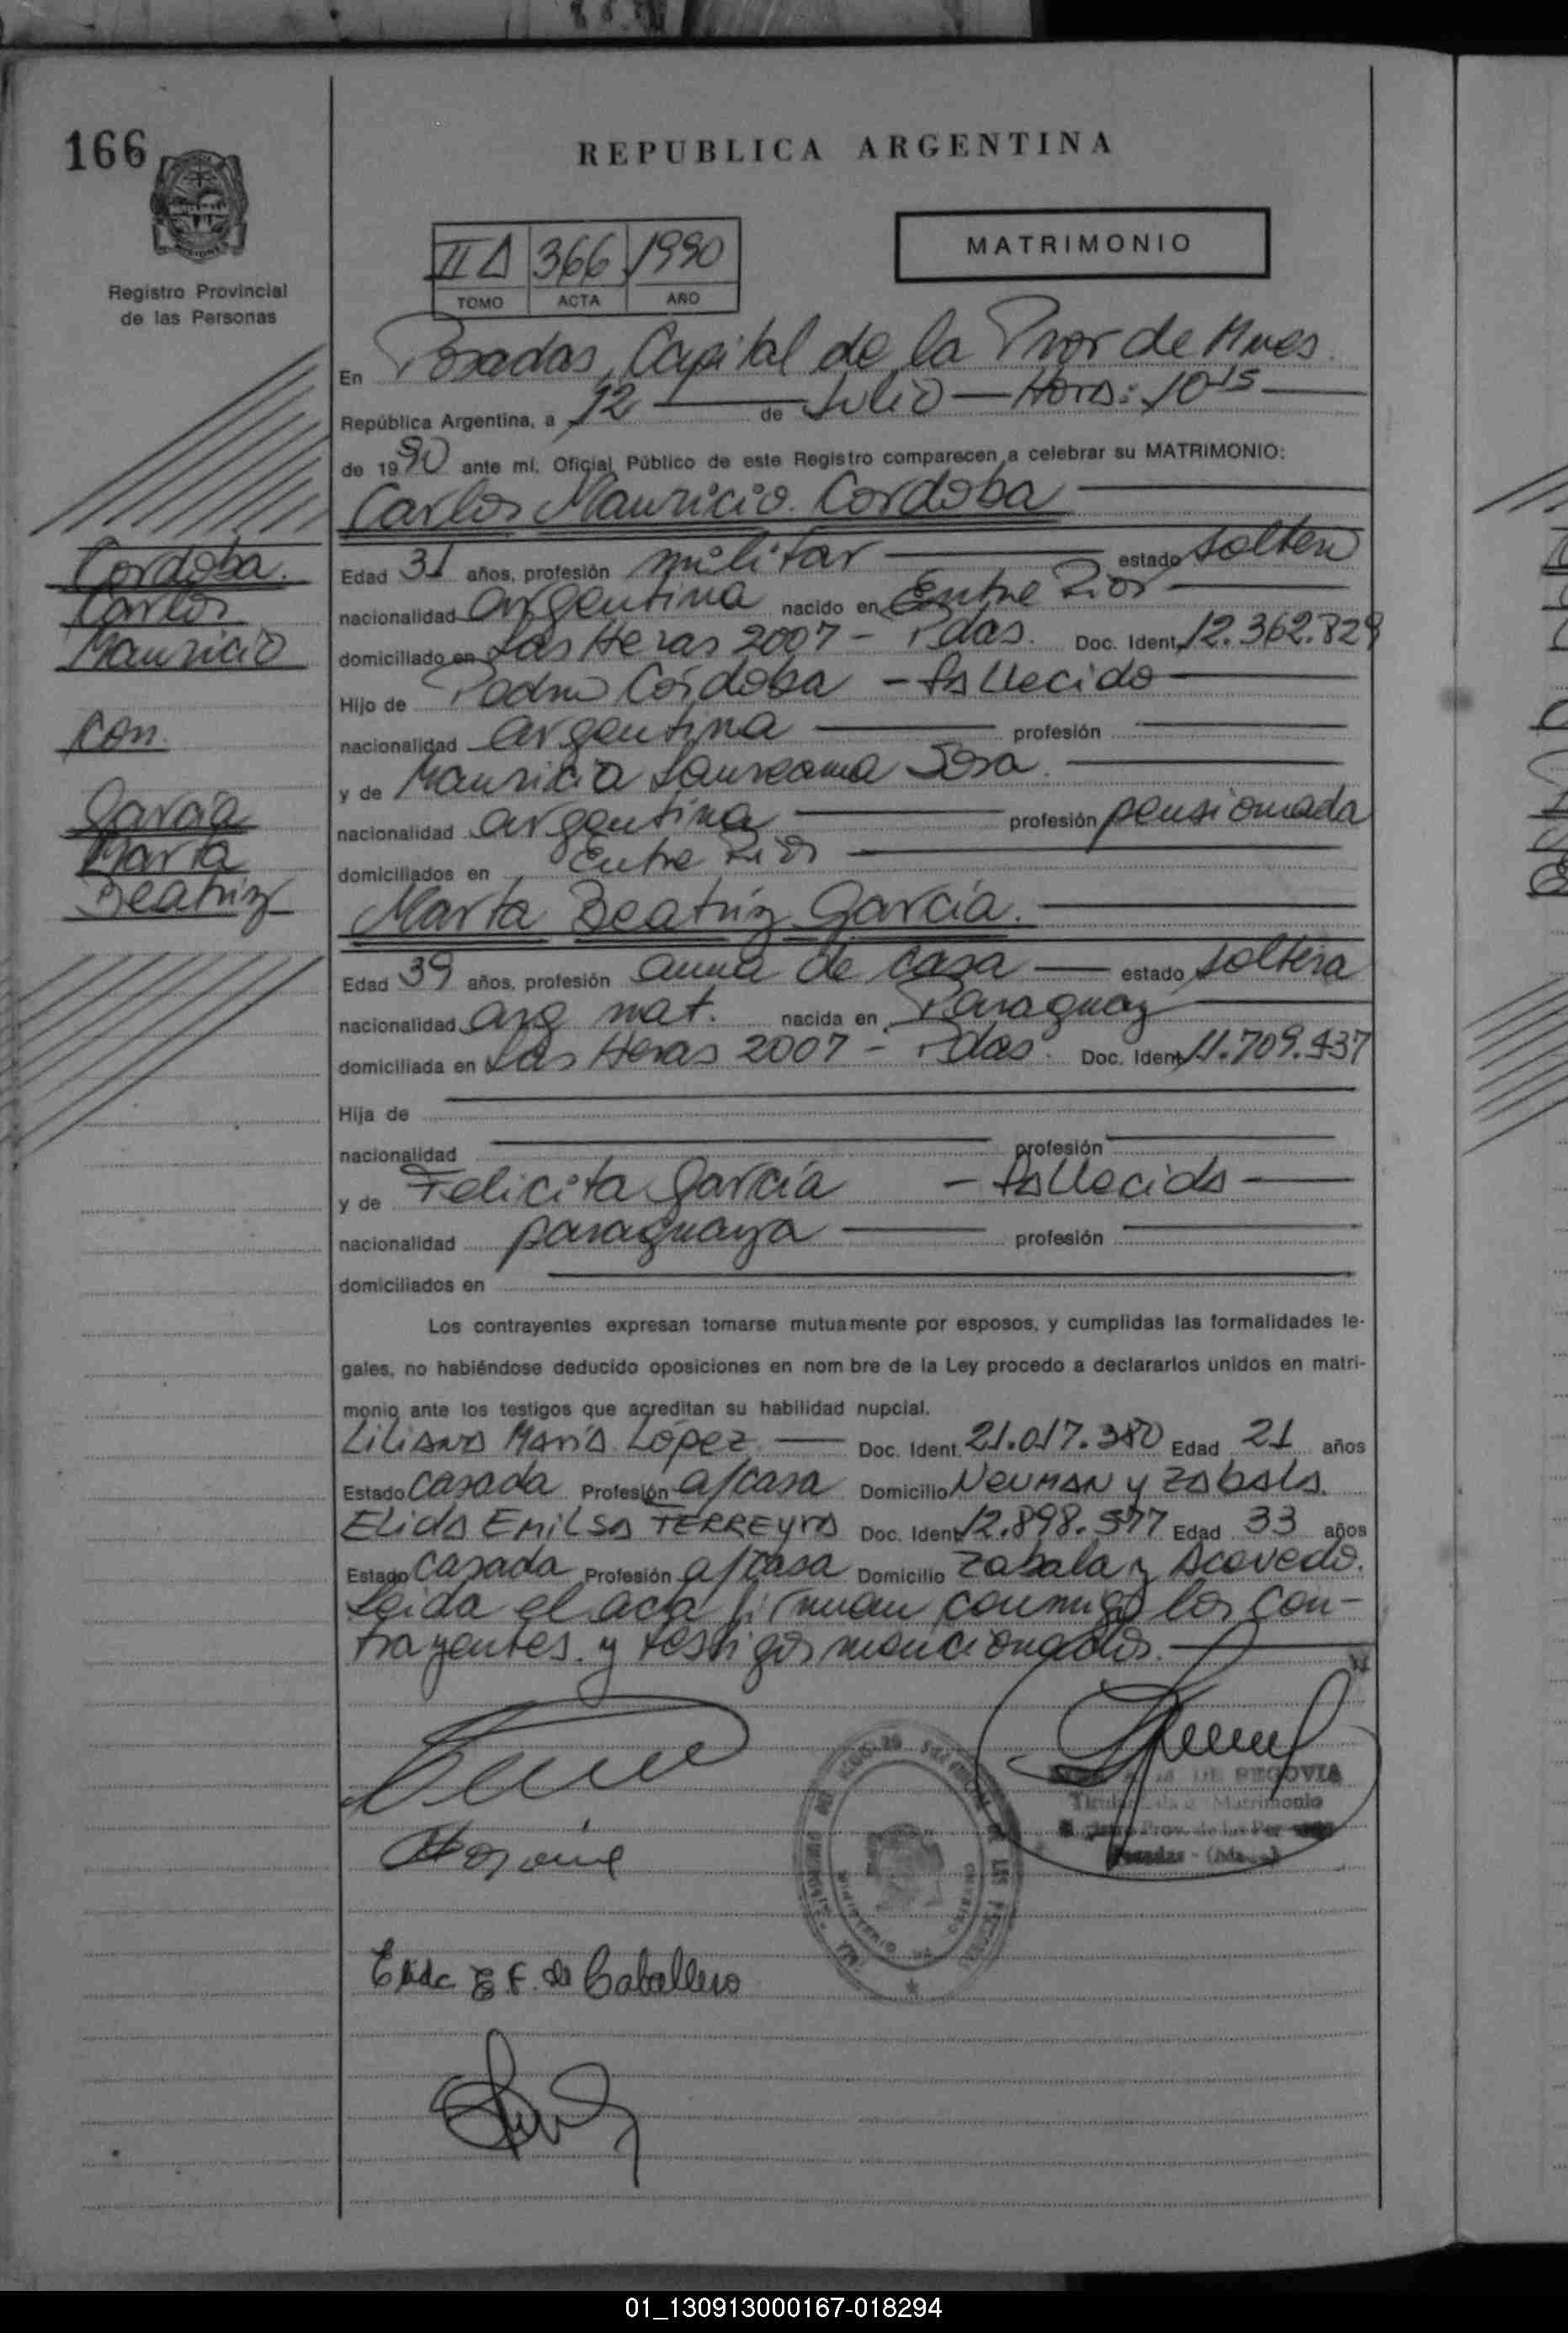 166
REPUBLICA ARGENTINA
MATRIMONIO
II A 366 1990
TOMO ACTA AÑO
Registro Provincial
de las Personas
En Posadas, Capital de la Prov de Mnes
República Argentina, a 12 de Julio Hora: 10-15
de 1990 ante mí, Oficial Público de este Registro comparecen a celebrar su MATRIMONIO:
Carlos Mauricio Cordoba
Cordoba.
Carlos
Mauricio
con
Garcia
Marta
Beatriz
Edad 31 años, profesión militar estado soltero
nacionalidad argentina nacido en Entre Rios
domiciliado en Las Heras 2007 - Pdas. Doc. Ident. 12.362.829
Hijo de Pedro Córdoba - fallecido
nacionalidad argentina profesión
y de Mauricia Laureana Sosa.
nacionalidad argentina profesión pensionada
domiciliados en Entre Rios
Marta Beatriz García.
Edad 39 años, profesión ama de casa estado soltera
nacionalidad arg nat. nacida en Paraguay
domiciliada en Las Heras 2007 - Pdas. Doc. Ident. 11.709.437
Hija de
nacionalidad profesión
y de Felicita García - fallecida
nacionalidad paraguaya profesión
domiciliados en
Los contrayentes expresan tomarse mutuamente por esposos, y cumplidas las formalidades le-
gales, no habiéndose deducido oposiciones en nom bre de la Ley procedo a declararlos unidos en matri-
monio ante los testigos que acreditan su habilidad nupcial.
Liliana María López Doc. Ident. 21.017.380 Edad 21 años
Estado casada Profesión a/casa Domicilio Neuman y Zabala.
Elida Emilsa FERREyra Doc. Ident. 12.898.577 Edad 33 años
Estado casada Profesión a/casa Domicilio Zabala y Acevedo.
Leida el acta firman conmigo los con-
trayentes y testigos mencionados.
DE SEGOVIA
Matrimonio
Prov. de las Per
Posadas
Elida E F. de Caballero
01_130913000167-018294